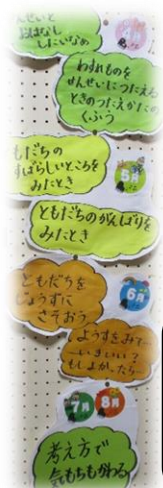 せんせいと
おはなし
したいなあ
4月
わすれものを
せんせいにつたえる
ときのつたえかたの
くふう
ともだちの
すばらしいところを
みたとき
5月
ともだちのがんばりを
みたとき
ともだちを
じょうずに
さそおう
6月
ようすをみて…
…いきいい？
もしよかったら…
7月
8月
考え方で
気もちもかわる